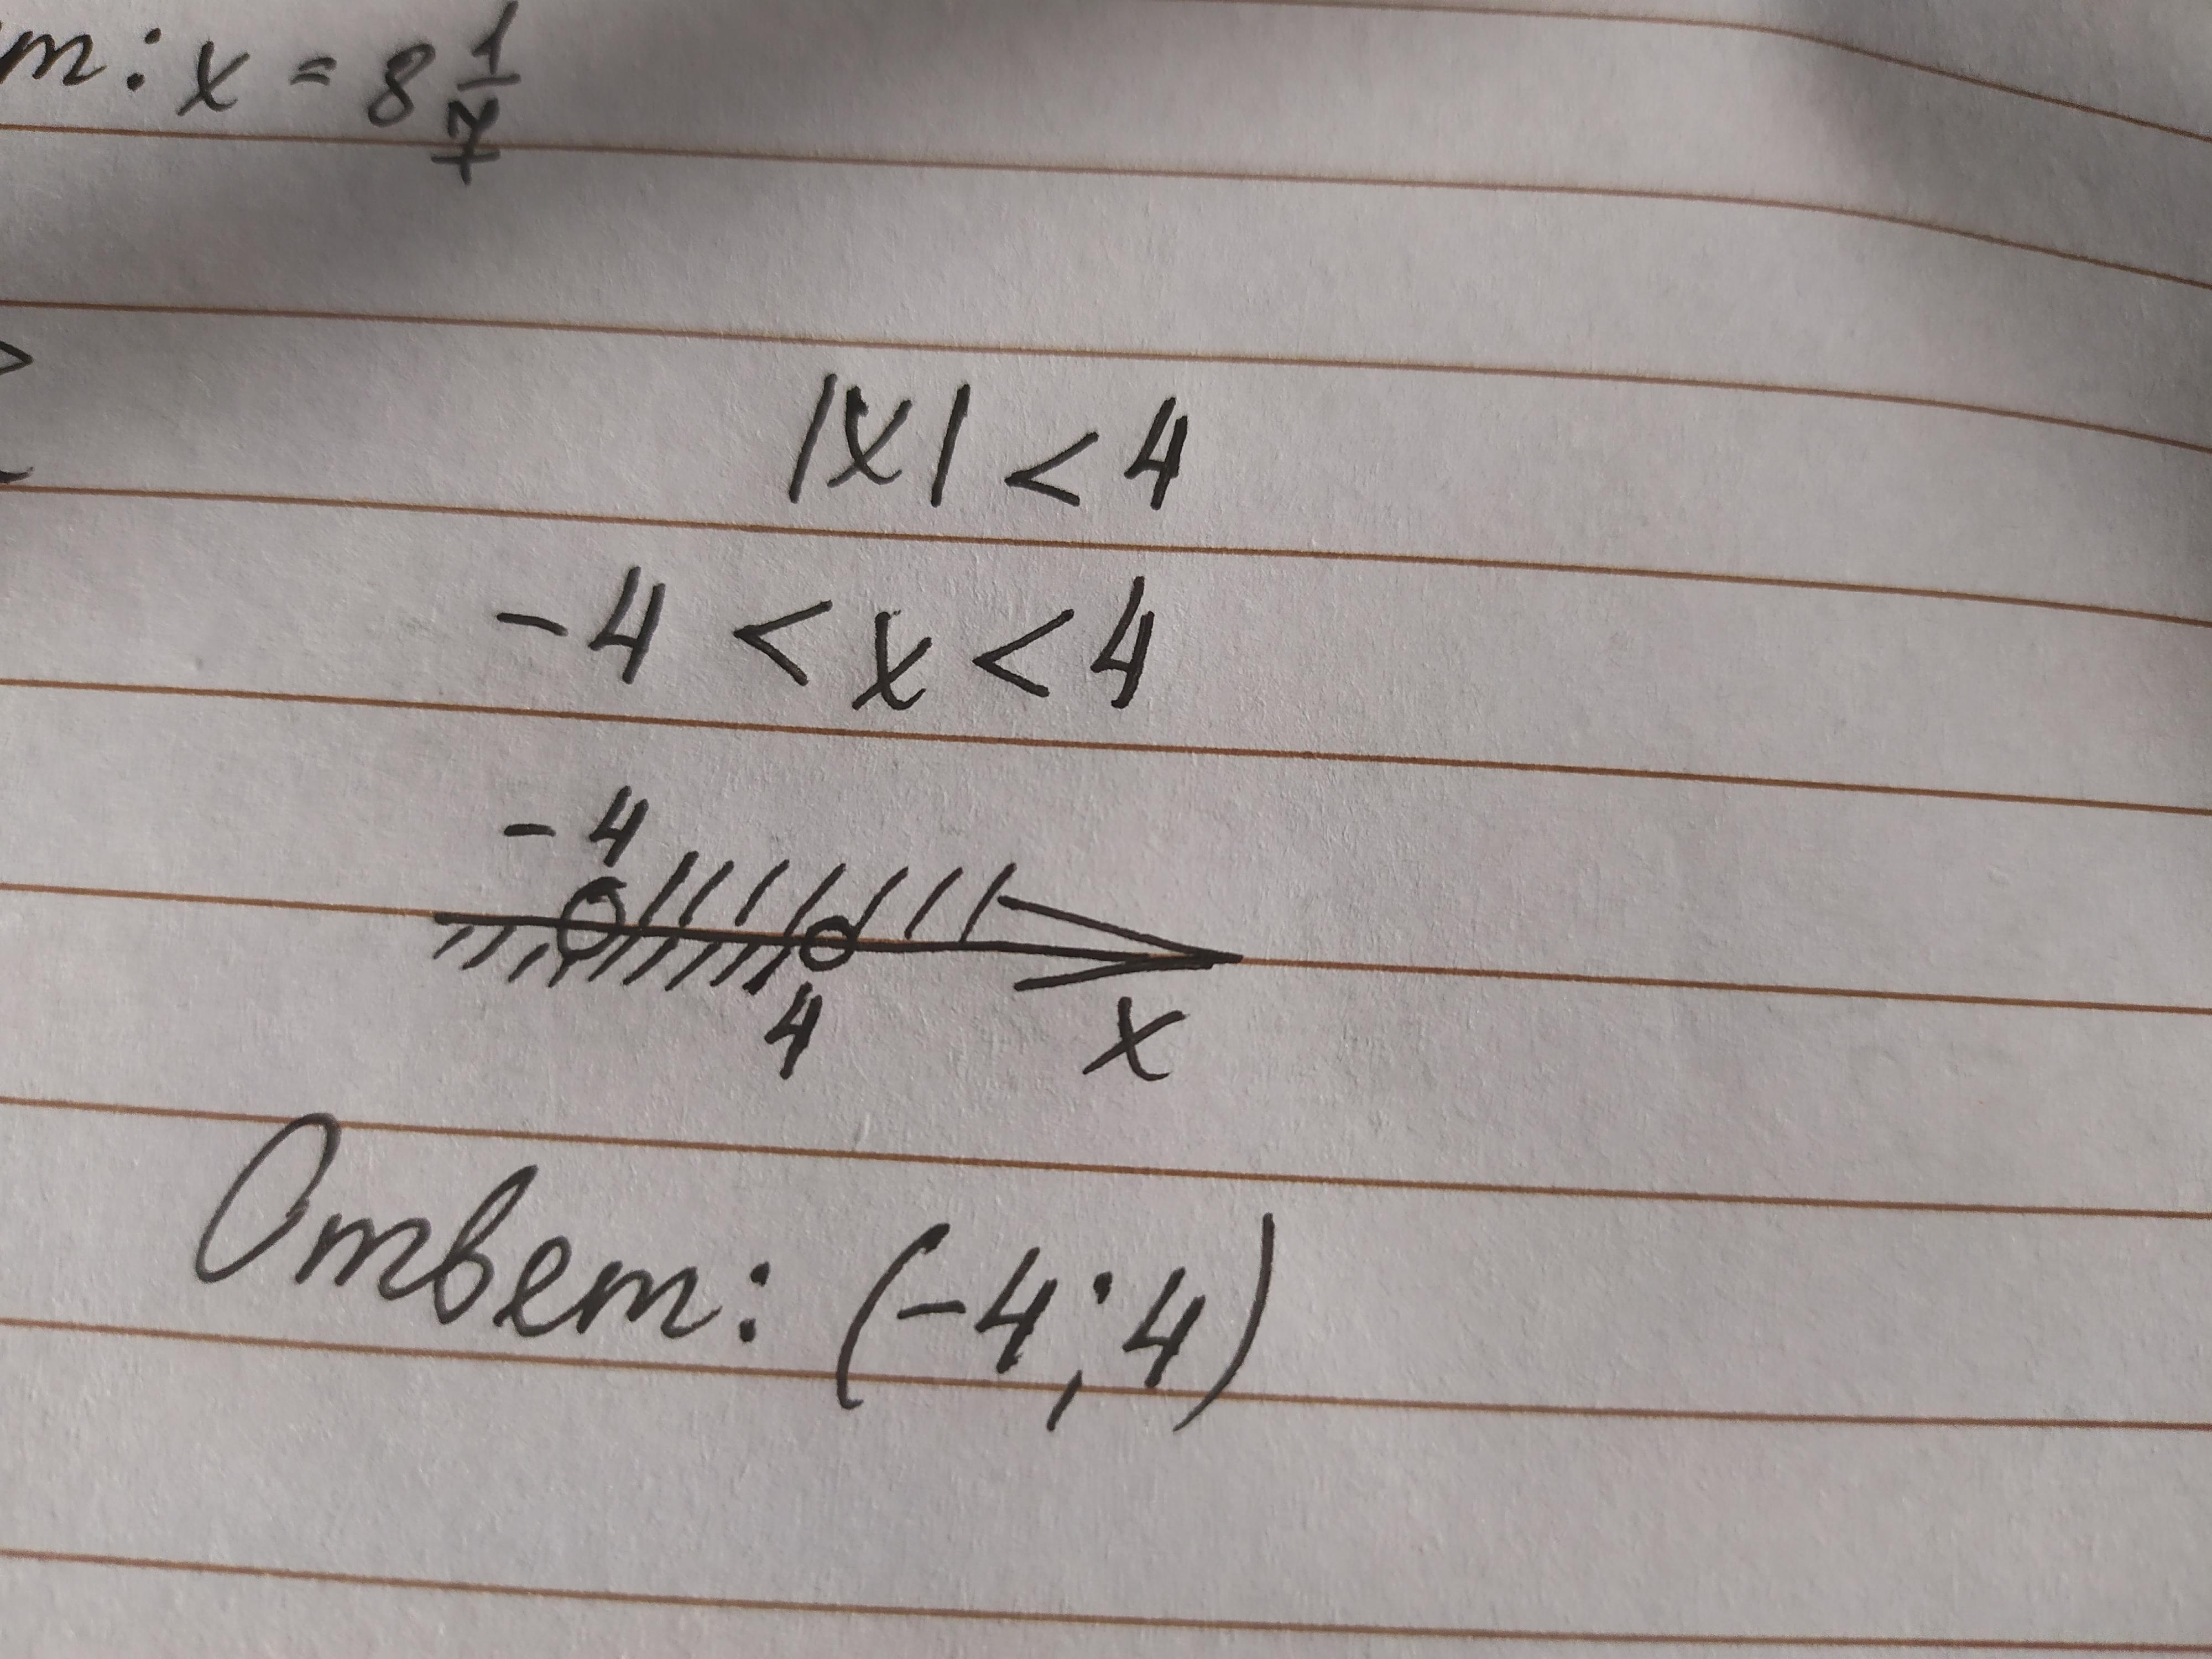 т: x = 8 1/7
|x| < 4
-4 < x < 4
-4
4 x
Ответ: (-4; 4)